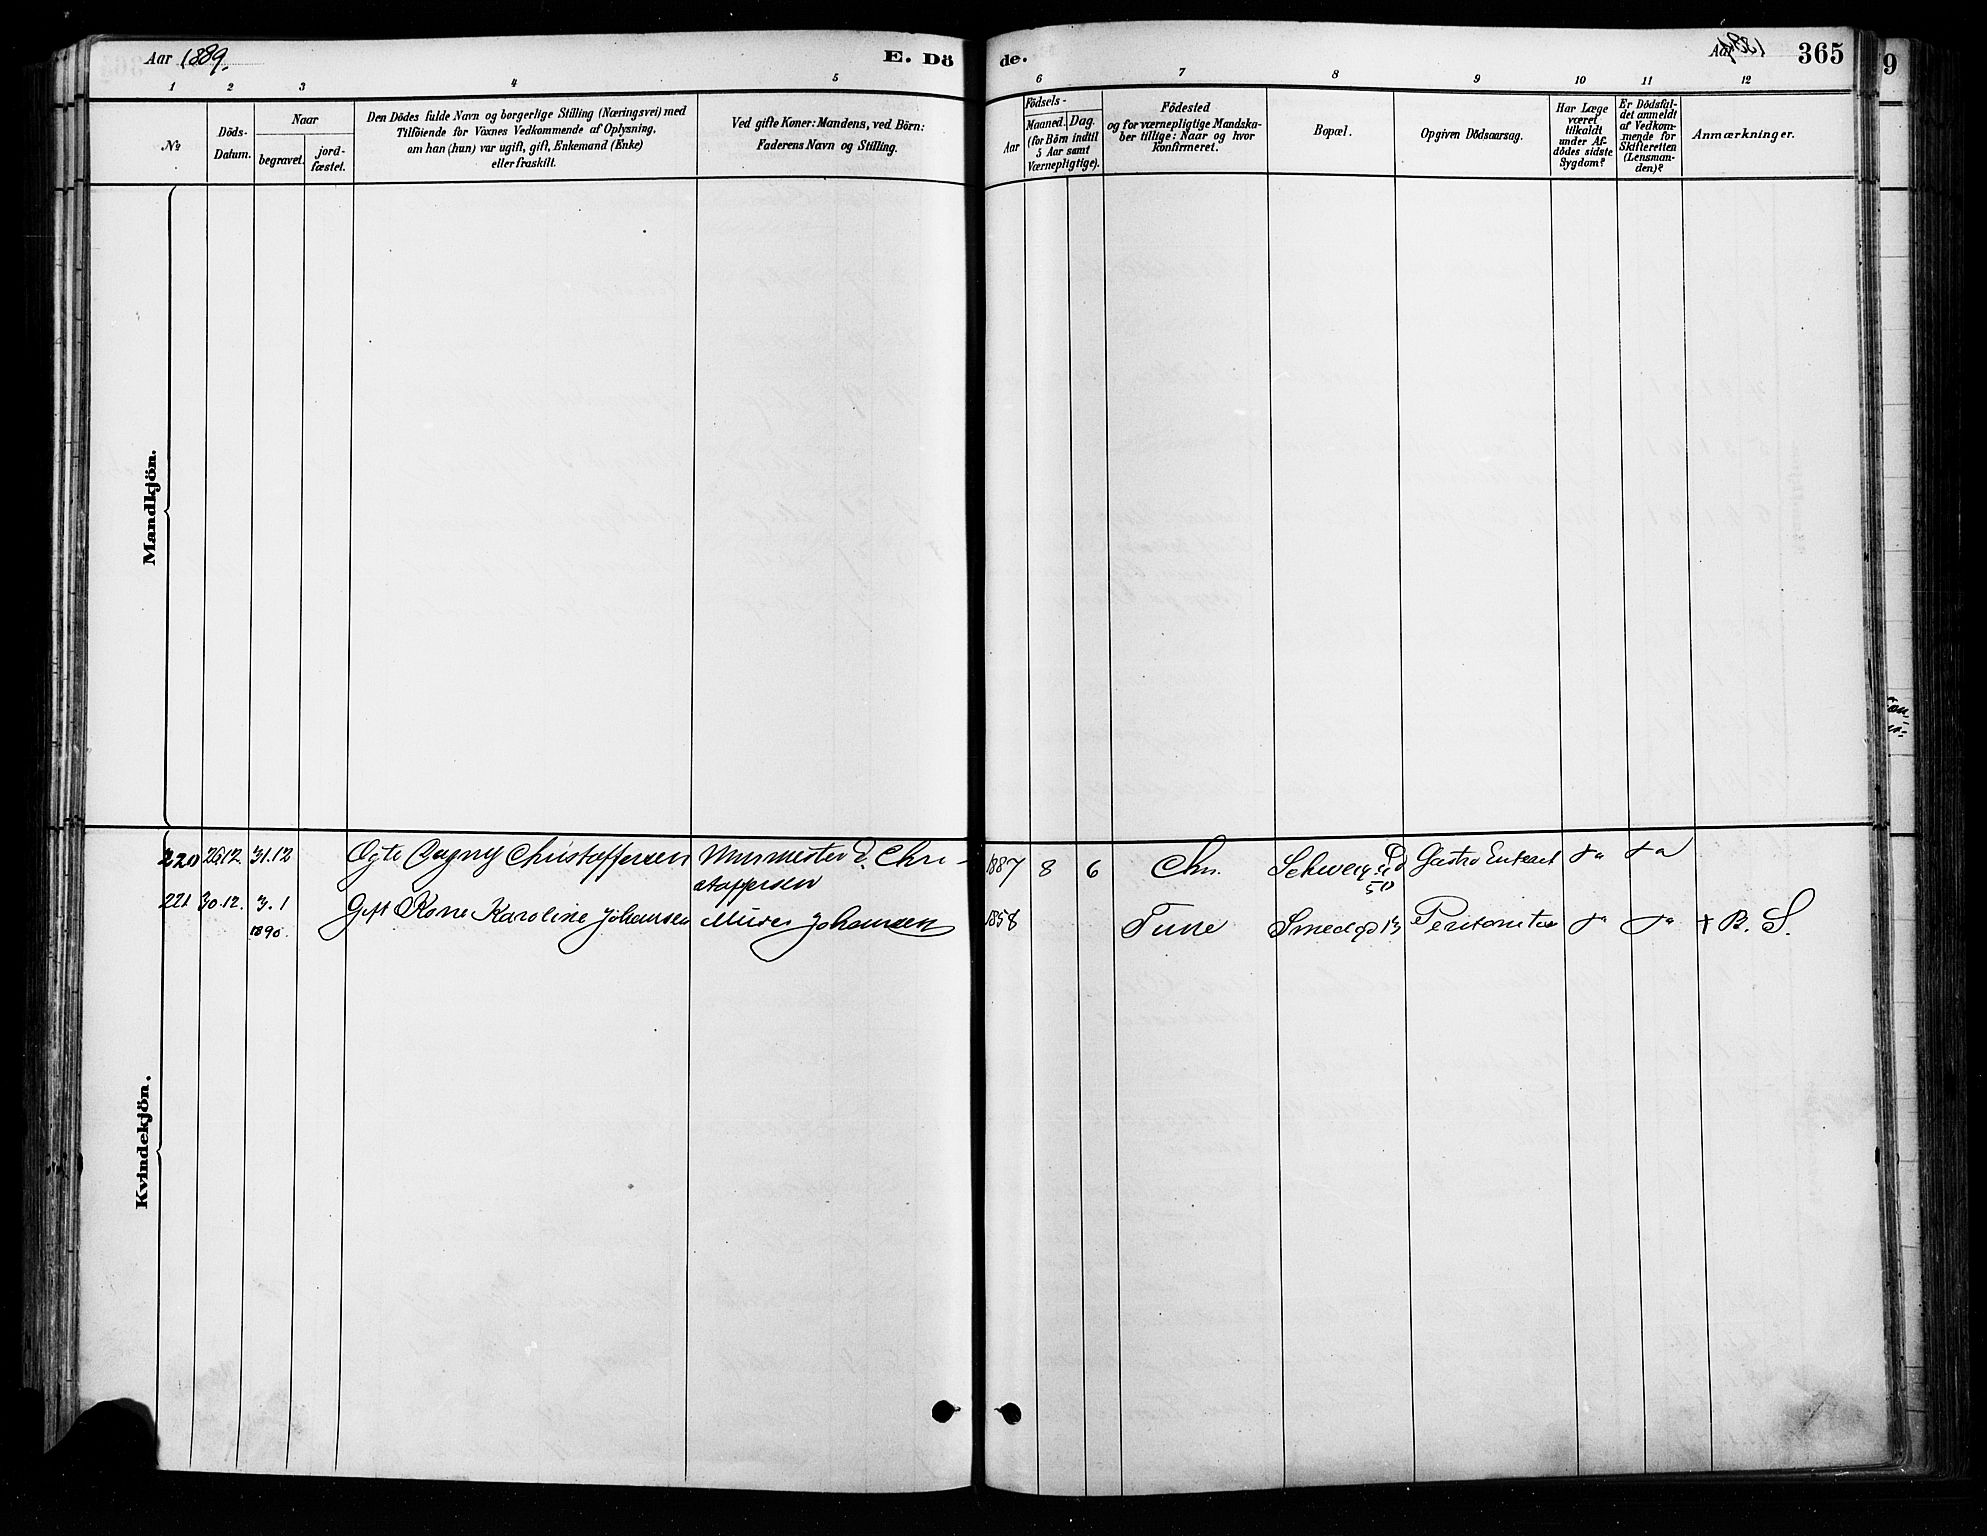 Aar 1889.
E. Dö
de.
Aar
365
1 2 3 4 5
6 7 8 9 10 11 12
No
Döds-
Datum.
Naar
begravet.
jord-
fæstet.
Den Dödes fulde Navn og borgerlige Stilling (Næringsvei) med
Tilföiende for Voxnes Vedkommende af Oplysning,
om han (hun) var ugift, gift, Enkemand (Enke)
eller fraskilt.
Ved gifte Koner: Mandens, ved Börn:
Faderens Navn og Stilling.
Födsels-
Aar
Maaned.
Dag.
(for Börn indtil
5 Aar samt
Værnepligtige).
Födested
og for værnepligtige Mandska-
ber tillige: Naar og hvor
konfirmeret.
Bopæl.
Opgiven Dödsaarsag.
Har Læge
været
tilkaldt
under Af-
dödes sidste
Sygdom?
Er Dödsfal-
det anmeldt
af Vedkom-
mende for
Skifteretten
(Lensman-
den)?
Anmærkninger.
Mandkjön.
Kvindekjön.
220 26.12 31.12 Ogte Dagny Christoffersen Murmester Chri-
stoffersen
1887 8 6 Chr. 50 Gastro Enterit Ja Ja
221 30.12. 3.1
1890.
Gift Kone Karoline Johansen Murer Johansen
1858 Tune Smedgd 13 Peritonitis Ja Ja + B. S.
9